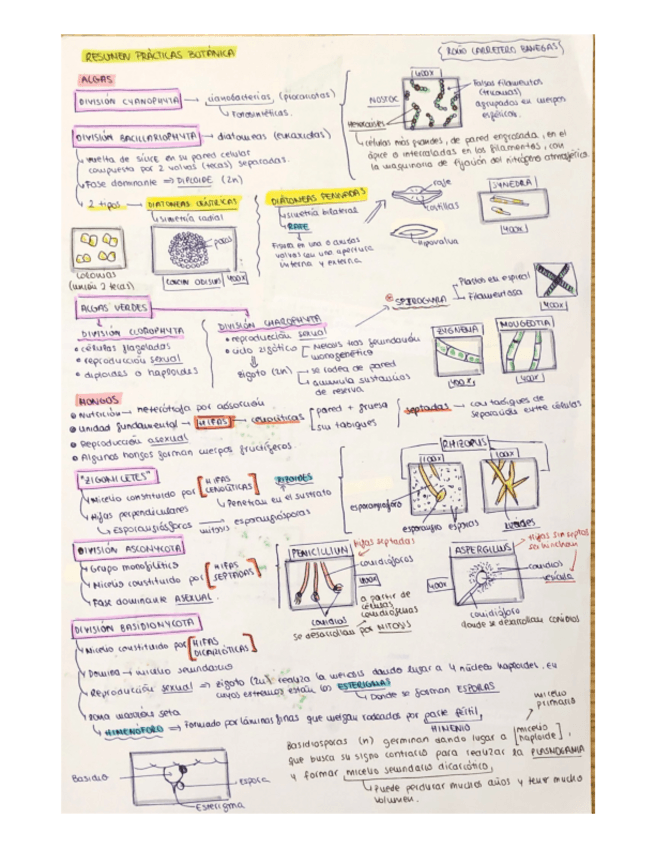 RESUMEN PRÁCTICAS BOTÁNICA
(ROCÍO CARRETERO BANEGAS)
ALGAS
DIVISIÓN CYANOPHYTA → cianobacterias (procariotas)
↳ Fotosintéticas.
400X
NOSTOC
Heterocistes
Falsos filamentos
(tricomas)
agrupados en cuerpos
esféricos.
↳ células más grandes, de pared engrosada, en el
ápice o intercaladas en los filamentos, con
la maquinaria de fijación del nitrógeno atmosférico.
DIVISIÓN BACILLARIOPHYTA → diatomeas (eukariotas)
vuelta de sílice en su pared celular
compuesta por 2 valvas (tecas) separadas.
Fase dominante ⇒ DIPLOIDE (2n)
2 tipos → DIATOMEAS CÉNTRICAS
↳ simetría radial
colonias
(unión 2 tecas)
poros
400X
DIATOMEAS PENNADAS
↳ simetría bilateral
↳ RAFE
Fisura en una o ambas
valvas con una apertura
interna y externa.
rafe
costillas
SYNEDRA
400X
ALGAS VERDES
DIVISIÓN CLOROPHYTA
• células flageladas
• reproducción sexual
• diploides o haploides
DIVISIÓN CHAROPHYTA
• reproducción sexual
• ciclo zigótico
Meiosis tras fecundación
monogenético
zigoto (2n)
→ se rodea de pared
→ acumula sustancias
de reserva
SPIROGYRA
Plastos en espiral
Filamentosa
400X
ZIGNEMA
400X
MOUGEOTIA
400X
HONGOS
• Nutrición → heterótrofa por adsorción
• Unidad fundamental → HIFAS → cenocíticas
pared + gruesa
sin tabiques
septadas → con tabiques de
separación entre células
• Reproducción asexual
• Algunos hongos forman cuerpos fructíferos.
"ZIGOMICETES"
Micelio constituido por [HIFAS
CENOCÍTICAS]
RIZOIDES
↳ Penetran en el sustrato
Hifas perpendiculares
↳ Esporangióforos → mitosis esporangiósporas
RHIZOPUS
100X
100X
esporangióforo
esporangio
esporas
rizoides
DIVISIÓN ASCOMYCOTA
Grupo monofilético
Micelio constituido por [HIFAS
SEPTADAS]
Fase dominante ASEXUAL.
PENICILLIUM
Hifas septadas
conidióforos
400X
a partir de
células
conidiógenas
conidios
se desarrollan por MITOSIS
ASPERGILLUS
Hifas sin septos
se hinchan
conidios
vesícula
400X
conidióforo
donde se desarrollan conidios
DIVISIÓN BASIDIOMYCOTA
Micelio constituido por [HIFAS
DICARIÓTICAS]
Domina → micelio secundario
Reproducción sexual ⇒ zigoto (2n) realiza la meiosis dando lugar a 4 núcleos haploides. En
cuyos extremos están los ESTERIGMAS
↳ Donde se forman ESPORAS
↳ HIMENÓFORO ⇒ Formado por láminas finas que cuelgan rodeadas por parte fértil,
HIMENIO
micelio
primario
Basidiosporas (n) germinan dando lugar a [micelio
haploide],
que busca su signo contrario para realizar la PLASMOGAMIA
y formar micelio secundario dicariótico,
↳ Puede perdurar muchos años y tener mucho
volumen.
Basidio
espora
Esterigma